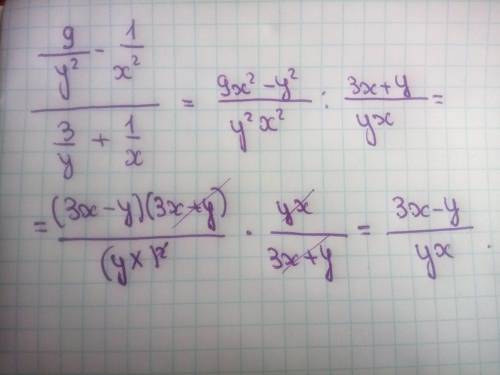 9/y² - 1/x² / 3/y + 1/x = 9x² - y² / y²x² : 3x + y / yx =
= (3x - y)(3x + y) / (yx)² · yx / 3x + y = 3x - y / yx .